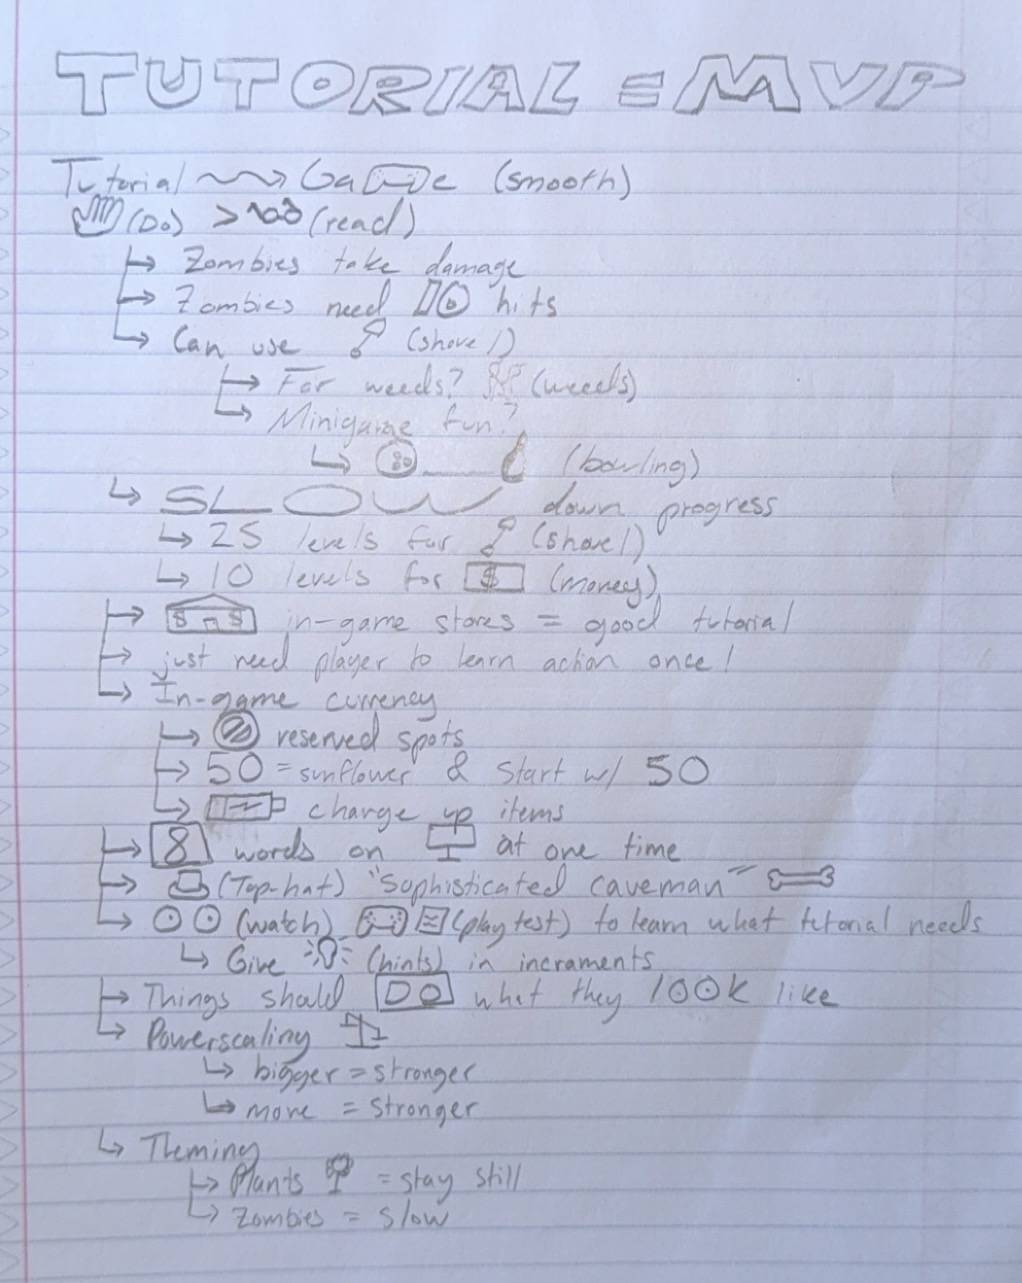 TUTORIAL = MVP
Tutorial → Game (smooth)
(Do) > (read)
↳ Zombies take damage
↳ Zombies need 10 hits
↳ Can use (shovel)
↳ For weeds? (weeds)
↳ Minigame fun?
↳ (bowling)
↳ SLOW down progress
↳ 25 levels for (shovel)
↳ 10 levels for $ (money)
↳ $ $ in-game stores = good tutorial
↳ just need player to learn action once!
↳ In-game currency
↳ reserved spots
↳ 50 = sunflower & start w/ 50
↳ change up items
↳ 8 words on at one time
↳ (Top-hat) "Sophisticated caveman"
↳ (watch) (play test) to learn what tutorial needs
↳ Give (hints) in incraments
↳ Things should DO what they look like
↳ Powerscaling
↳ bigger = stronger
↳ more = stronger
↳ Theming
↳ Plants = stay still
↳ Zombies = slow